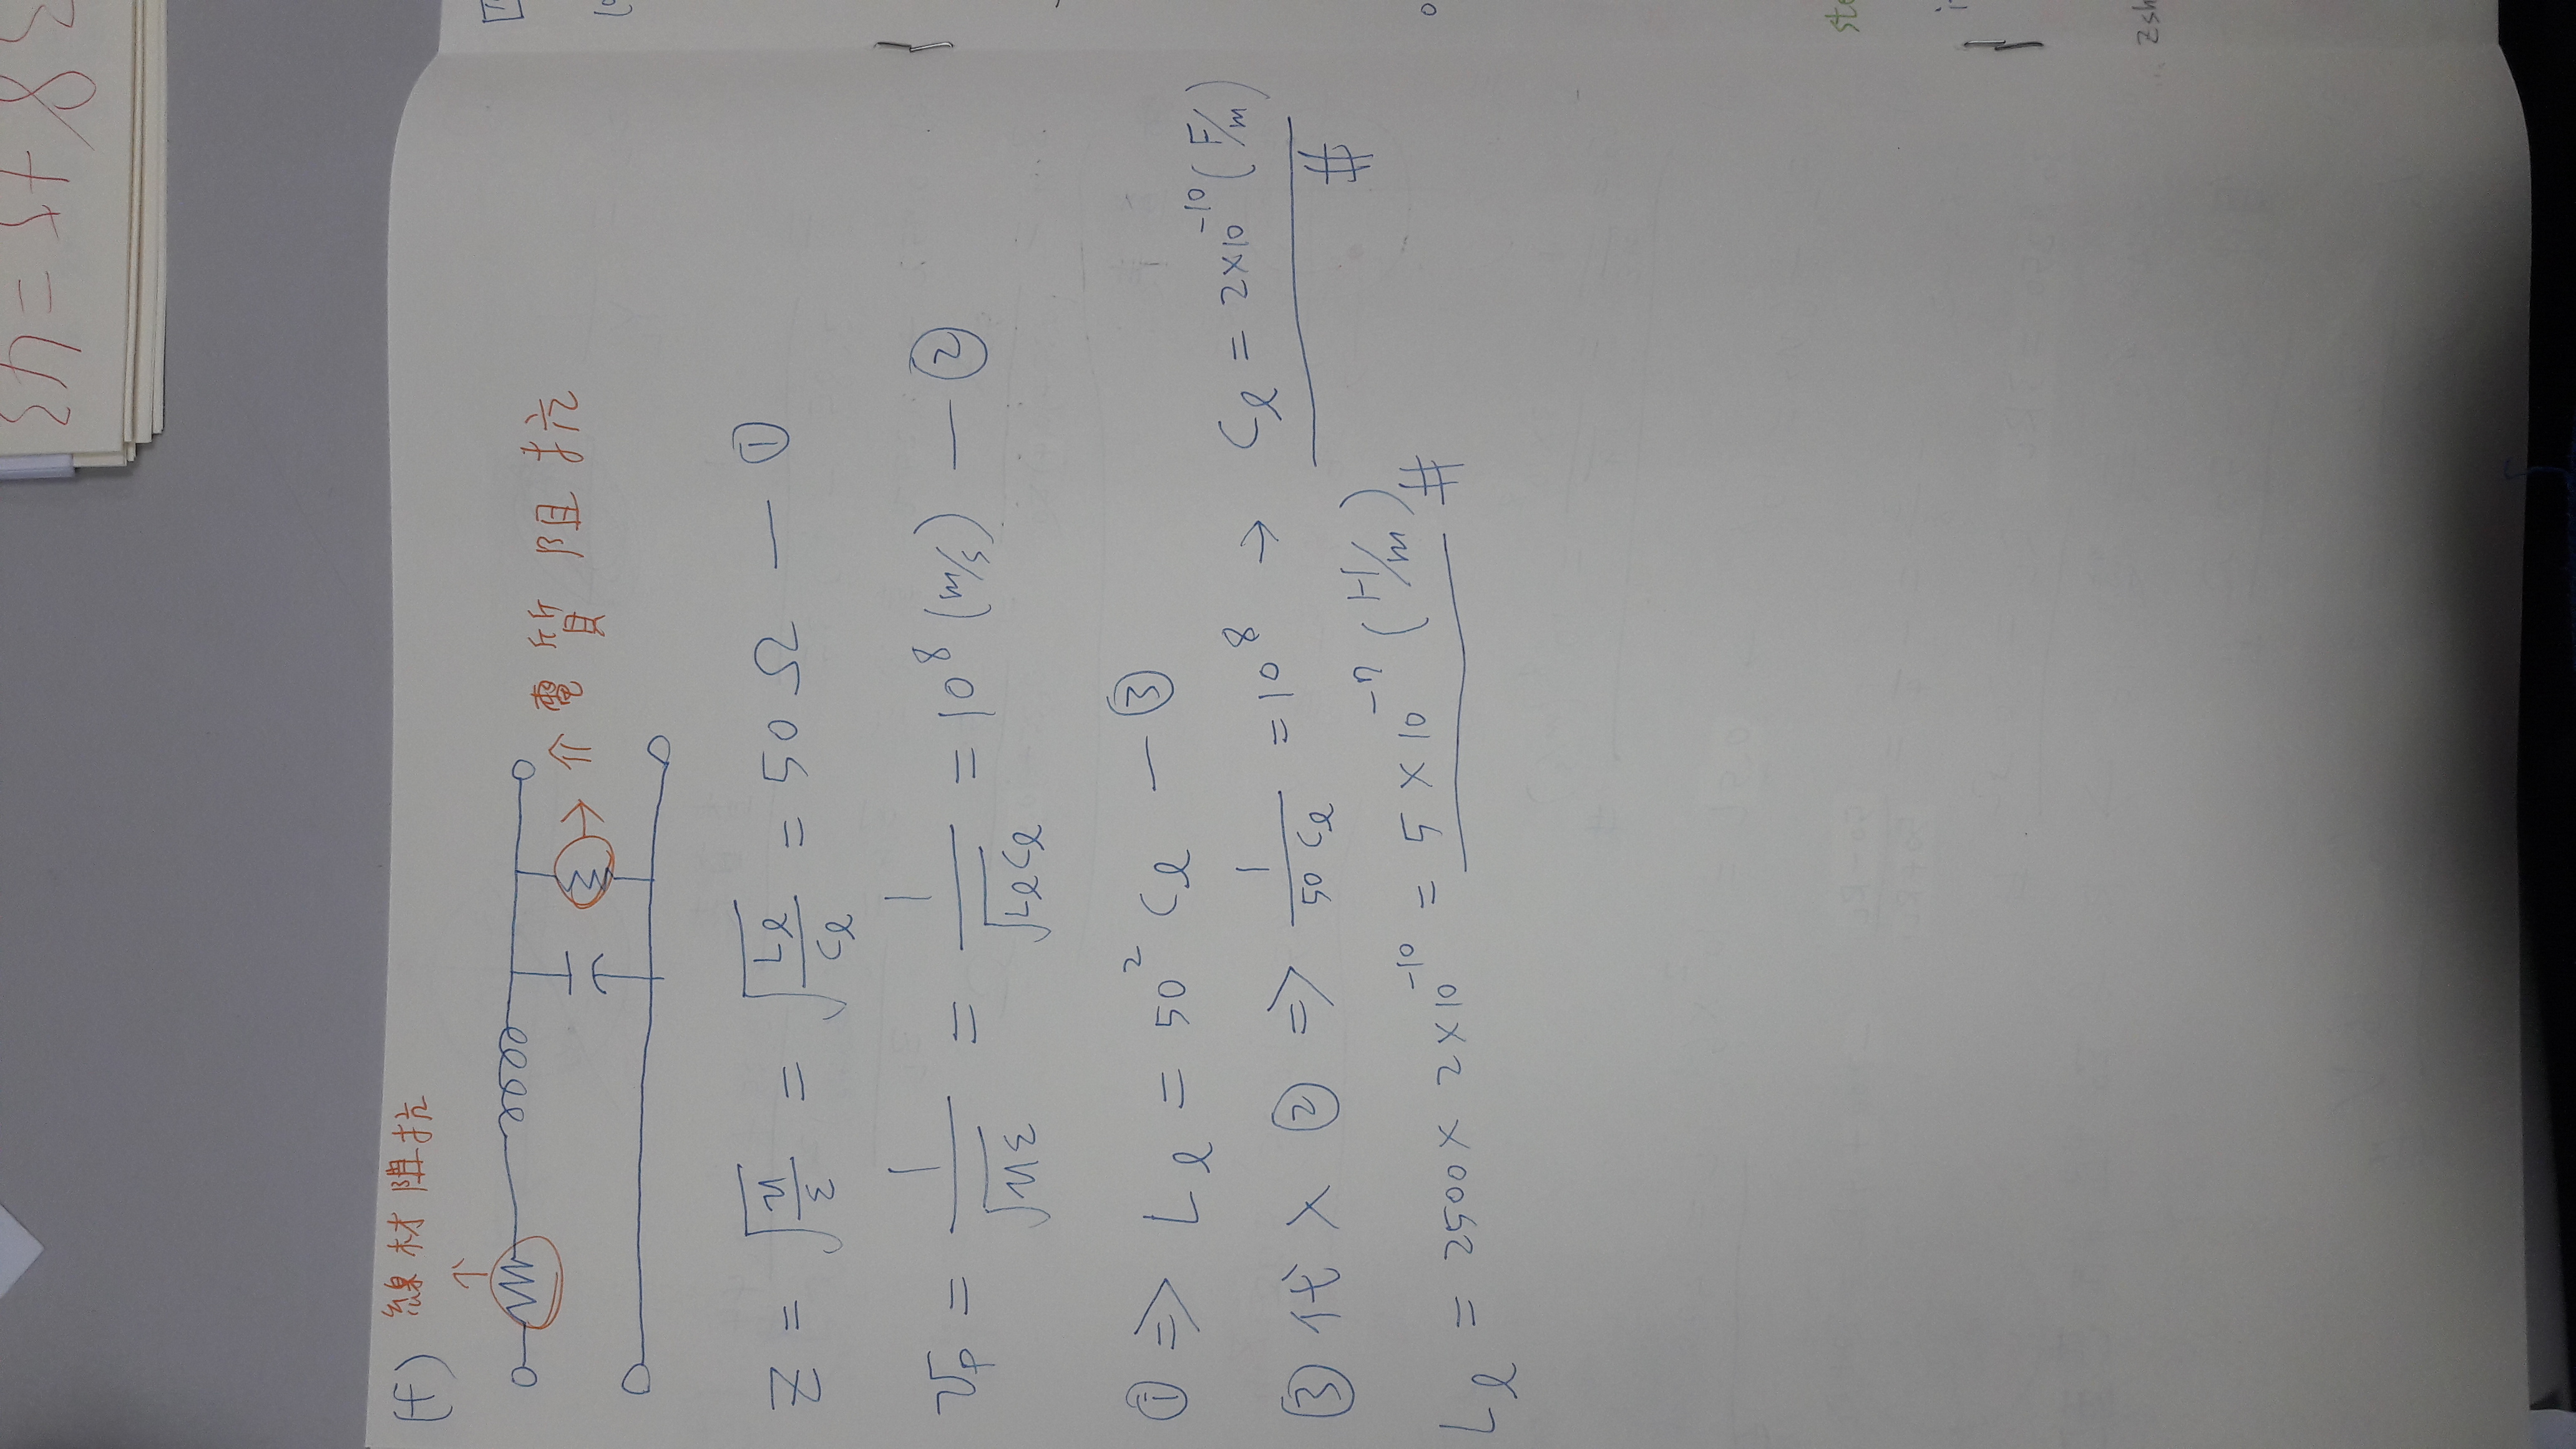 38+5=43
(f) 線材阻抗
↑
→ 介電質阻抗
Z = √(μ/ε) = √(Lℓ/Cℓ) = 50 Ω — ①
Vp = 1/√(με) = 1/√(LℓCℓ) = 10⁸ (m/s) — ②
① ⇒ Lℓ = 50² Cℓ — ③
③ 代入 ② ⇒ 1/(50 Cℓ) = 10⁸ → Cℓ = 2×10⁻¹⁰ (F/m) #
Lℓ = 2500 × 2×10⁻¹⁰ = 5 × 10⁻⁷ (H/m) #